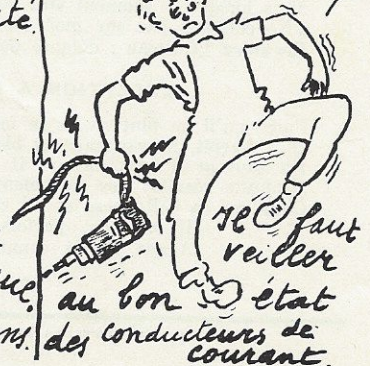 té.
Il faut
veiller
au bon état
ns. des conducteurs de
courant.